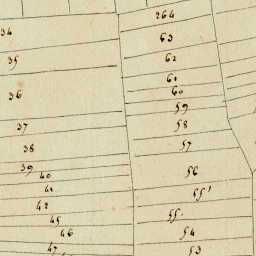 34
35
36
37
38
39
40
41
42
45
46
47
264
63
62
61
60
59
58
57
56
55'
55.
54
53